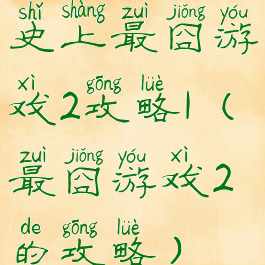 shǐ shàng zuì jiǒng yóu
史上最囧游
xì gōng lüè
戏2攻略1(
zuì jiǒng yóu xì
最囧游戏2
de gōng lüè
的攻略)